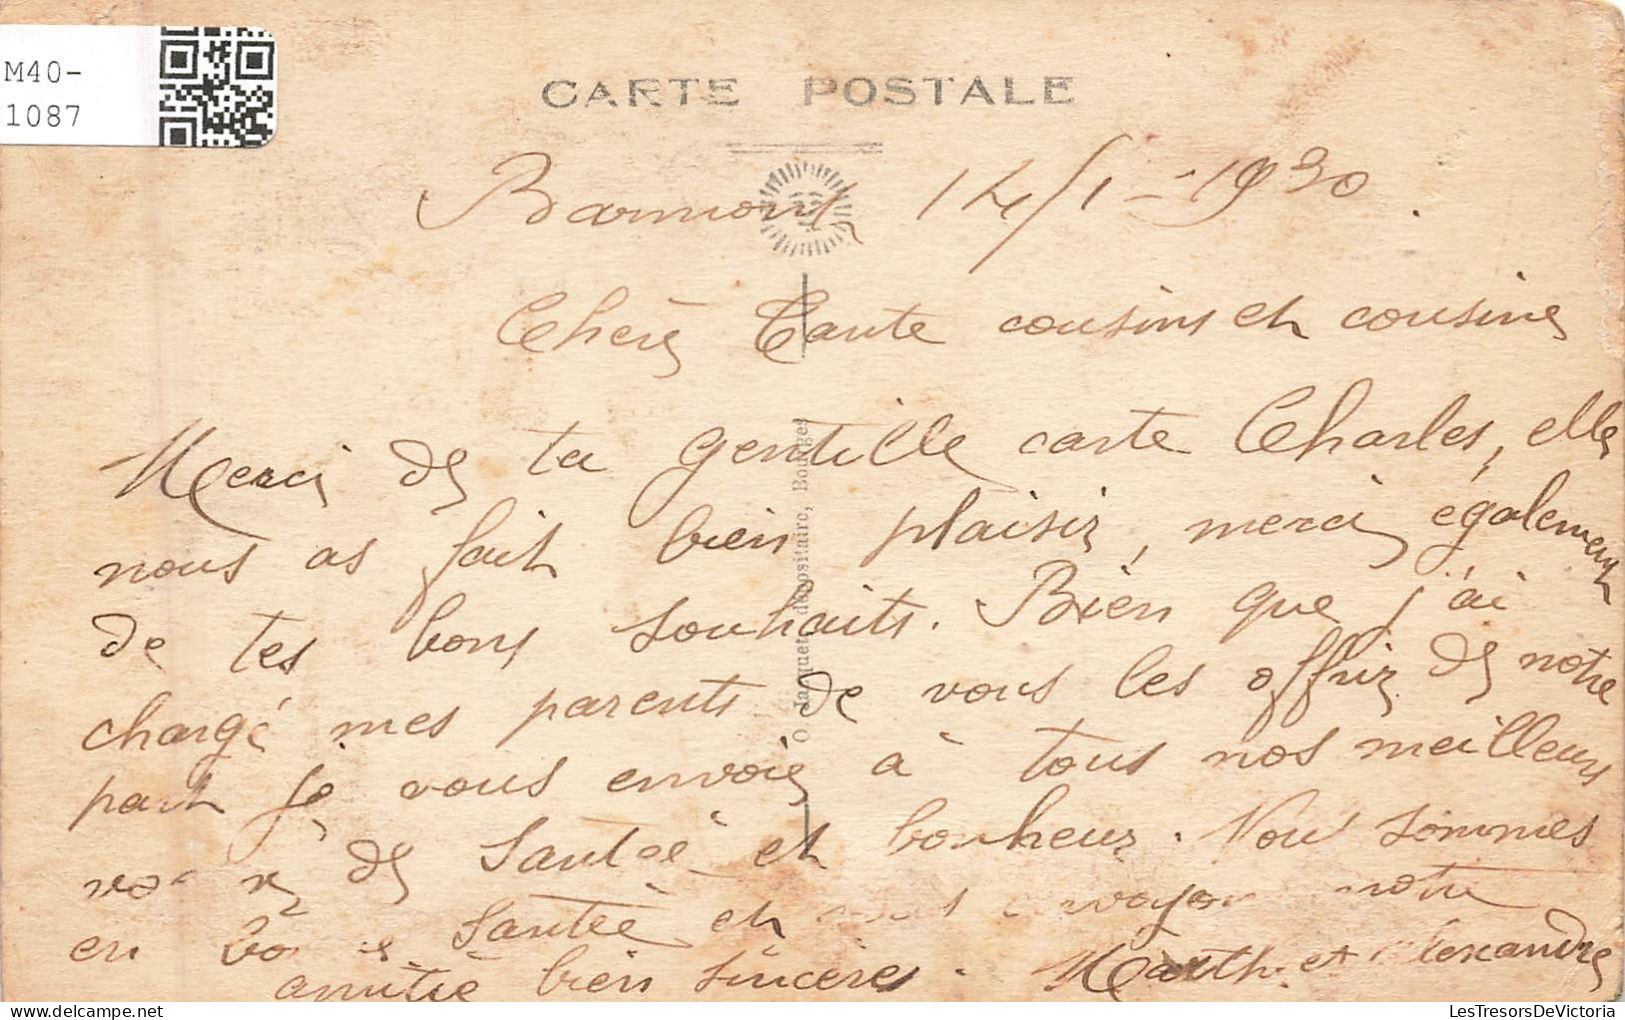 M40-
1087
CARTE POSTALE
14/1-1930.
Chère Tante cousins et cousine
Merci de ta gentille carte Charles, elle
nous as fait bien plaisir, merci également
de tes bons souhaits. Bien que j'ai
chargé mes parents de vous les offrir de notre
part je vous envoie à tous nos meilleurs
de santée et bonheur. Nous sommes
en santée et notre
amitié bien sincères. Marthe et Alexandre
O. Jaquet, dépositaire, Bourges
LesTresorsDeVictoria